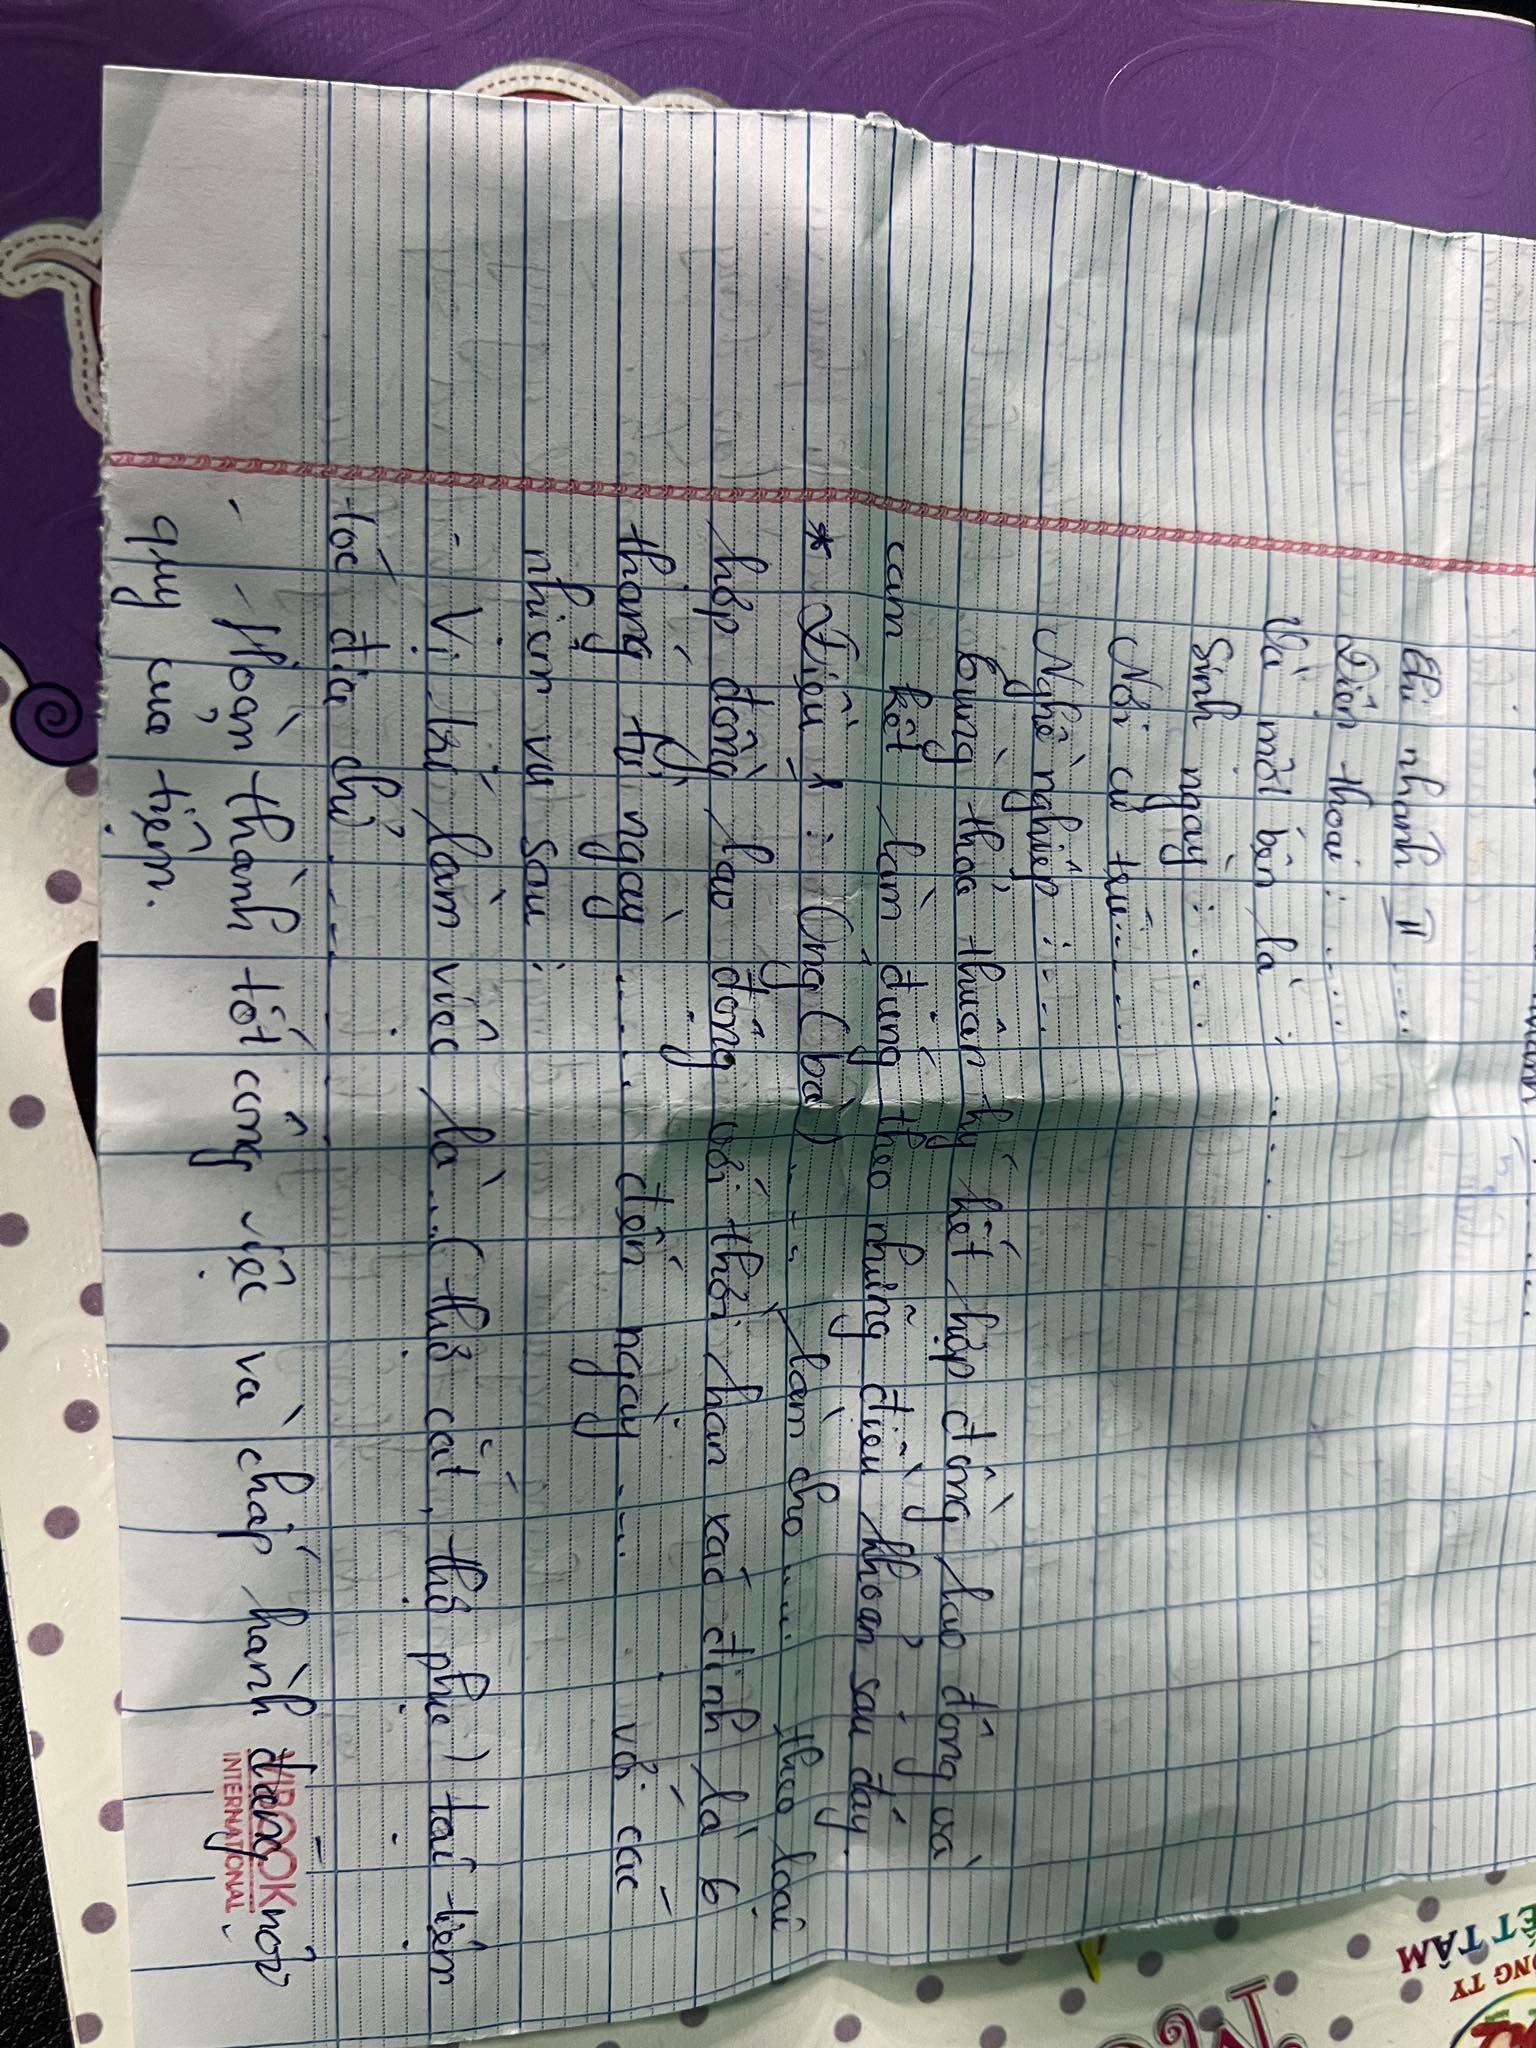 Chi nhánh II ....
Điện thoại : .....
Và một bên là : ......
Sinh ngày : ...
Nơi cư trú ......
Nghề nghiệp : ...
Cùng thỏa thuận ký kết hợp đồng lao động và
cam kết làm đúng theo những điều khoản sau đây.
* Điều 1 : Ông (bà) ..... làm cho ..... theo loại
hợp đồng lao động với thời hạn xác định là 6
tháng từ ngày ..... đến ngày ..... với các
nhiệm vụ sau :
- Vị trí làm việc là ... ( thợ cắt, thợ phụ ) tại tiệm
tóc địa chỉ .......
- Hoàn thành tốt công việc và chấp hành đúng nội
quy của tiệm.
VIBOOK
INTERNATIONAL
ỆT TÂM
ÔNG TY